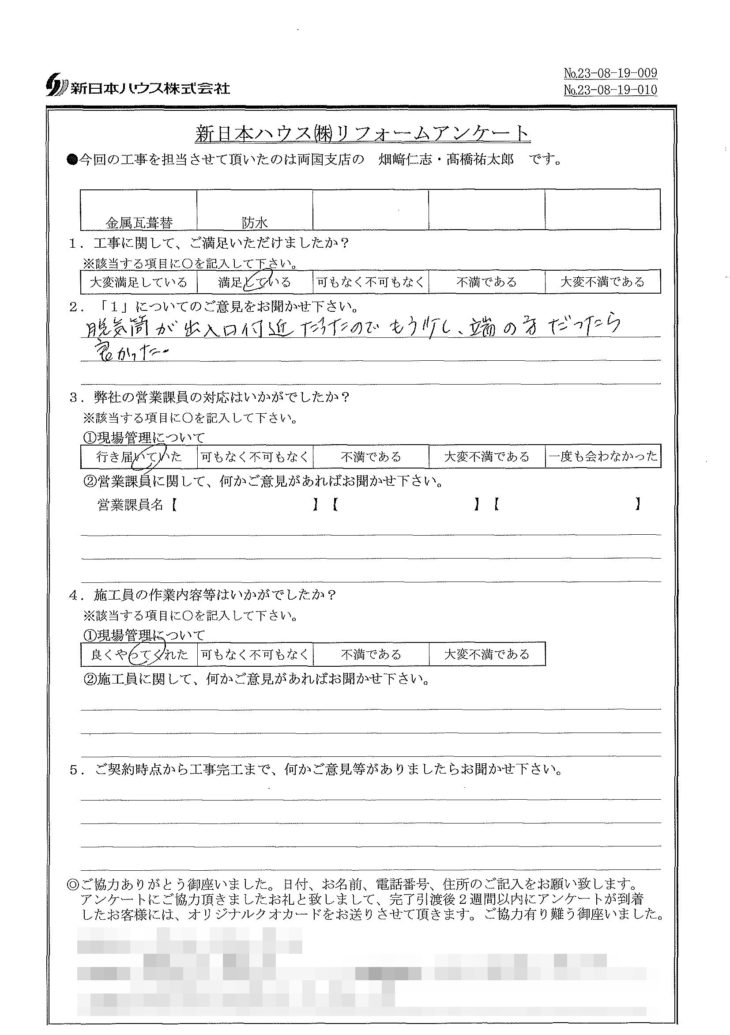 新日本ハウス株式会社
№23-08-19-009
№23-08-19-010
新日本ハウス㈱リフォームアンケート
●今回の工事を担当させて頂いたのは両国支店の　畑﨑仁志・髙橋祐太郎　です。
金属瓦葺替　防水
1．工事に関して、ご満足いただけましたか？
※該当する項目に○を記入して下さい。
大変満足している　満足している　可もなく不可もなく　不満である　大変不満である
2．「1」についてのご意見をお聞かせ下さい。
脱気筒が出入口付近だったのでもう少し、端の方だったら
良かった。
3．弊社の営業課員の対応はいかがでしたか？
※該当する項目に○を記入して下さい。
①現場管理について
行き届いていた　可もなく不可もなく　不満である　大変不満である　一度も会わなかった
②営業課員に関して、何かご意見があればお聞かせ下さい。
営業課員名【　】【　】【　】
4．施工員の作業内容等はいかがでしたか？
※該当する項目に○を記入して下さい。
①現場管理について
良くやってくれた　可もなく不可もなく　不満である　大変不満である
②施工員に関して、何かご意見があればお聞かせ下さい。
5．ご契約時点から工事完工まで、何かご意見等がありましたらお聞かせ下さい。
◎ご協力ありがとう御座いました。日付、お名前、電話番号、住所のご記入をお願い致します。
アンケートにご協力頂きましたお礼と致しまして、完了引渡後２週間以内にアンケートが到着
したお客様には、オリジナルクオカードをお送りさせて頂きます。ご協力有り難う御座いました。